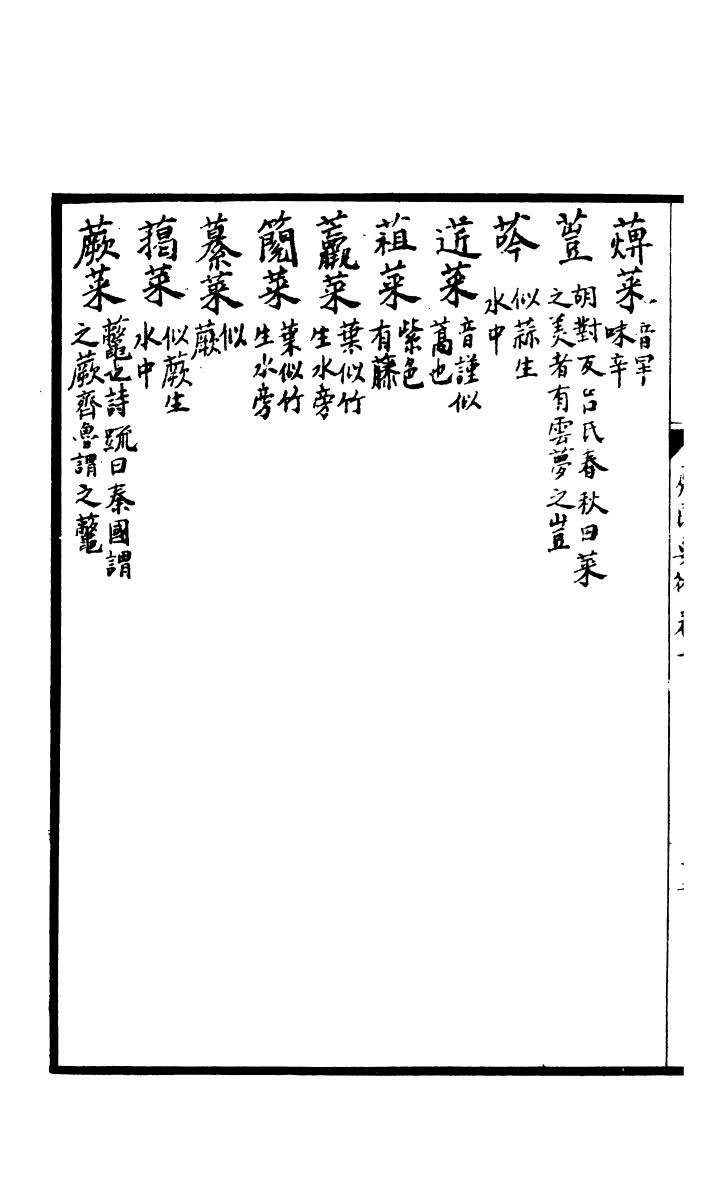 蔊菜 音罕味辛
䔇 胡對反呂氏春秋曰菜之美者有雲夢之豈
荶 似蒜生水中
菦菜 音謹似蒿也
葅菜 紫色有藤
菜 葉似竹生水旁
菜 葉似竹生水旁
藄菜 似蕨
菜 似蕨生水中
蕨菜 虌也詩疏曰秦國謂之蕨齊魯謂之虌